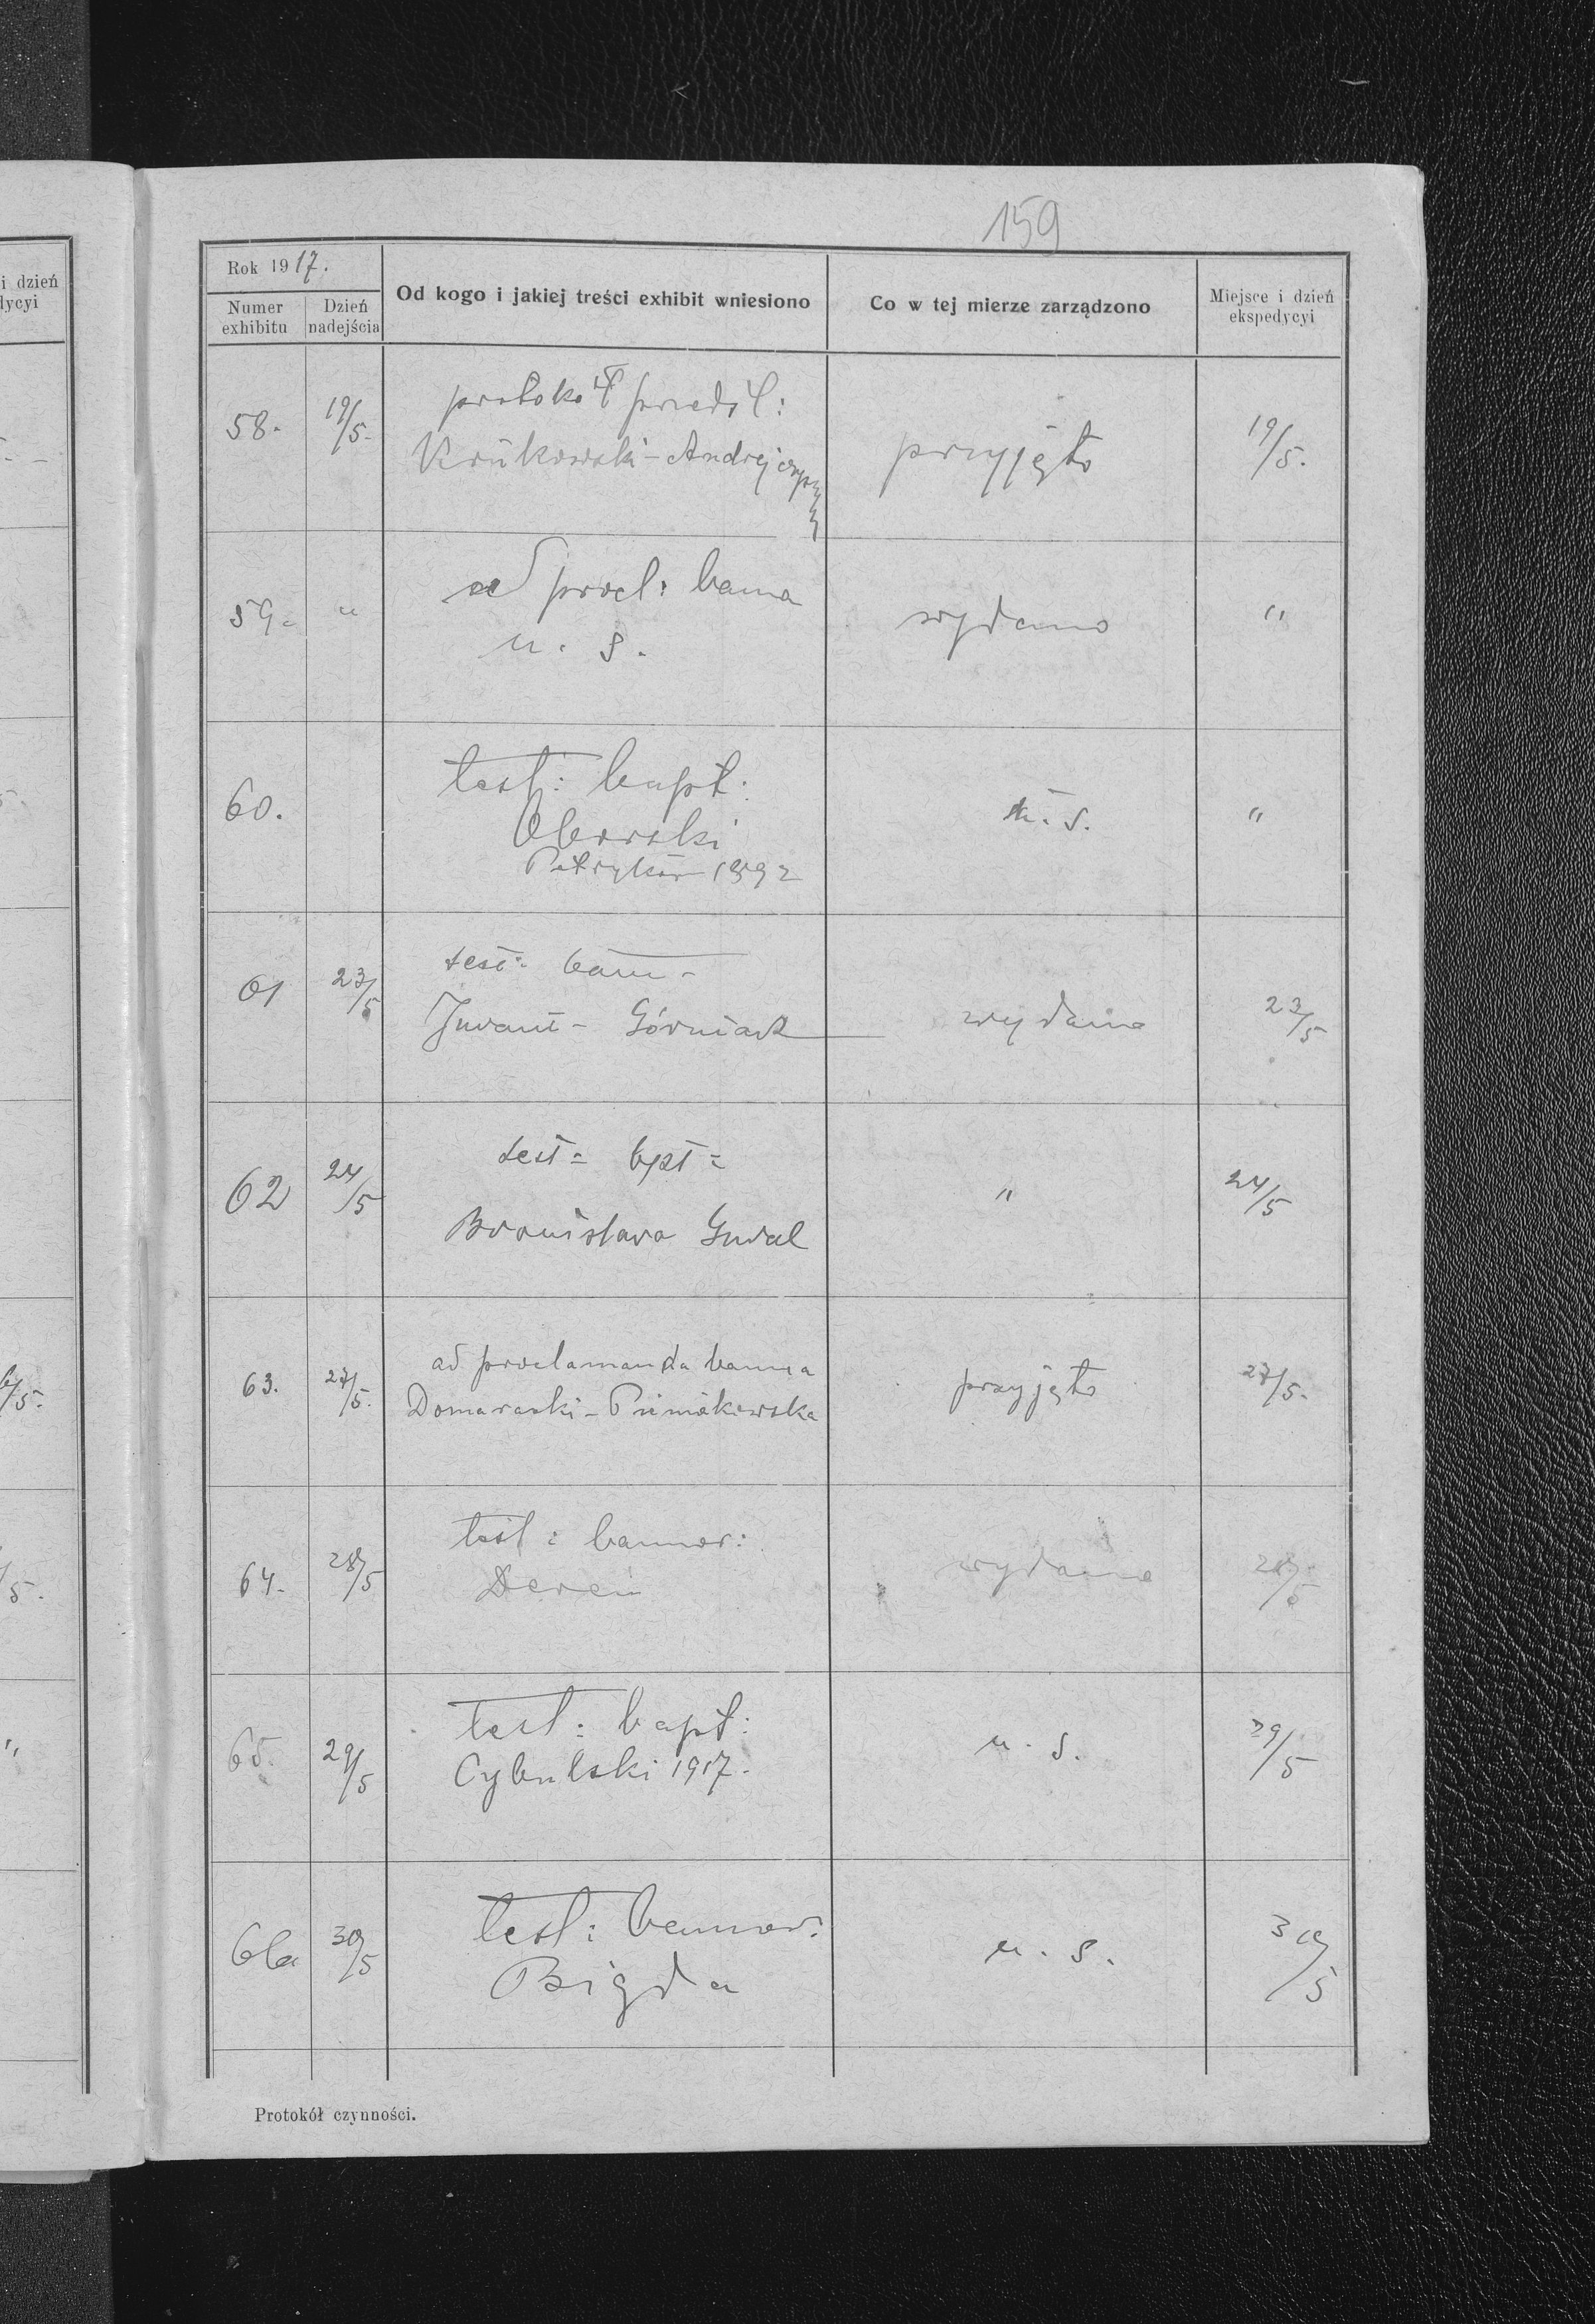 159
i dzień
dycyi
Rok 1917.
Numer exhibitu
Dzień nadejścia
Od kogo i jakiej treści exhibit wniesiono
Co w tej mierze zarządzono
Miejsce i dzień ekspedycyi
58. 19/5. protokół przedśl: przyjęto 19/5.
Krukowski -
59. " ad procl: banna wydano "
u. s.
60. test: bapt: u. s. "
Oborski
Petryków 1892
61 23/5 test: bann- 23/5
Górniak wydano
62 24/5 test= bpt= " 24/5
Bronisława
63. 27/5. ad proclamanda banna przyjęto 27/5.
Domaraski -
64. 28/5 test: bannor: wydano 28/5
Dereń
65. 29/5 test: bapt: u. s. 29/5
Cybulski 1917.
66a 30/5 test: bannor: u. s. 30/5
Bigda
Protokół czynności.